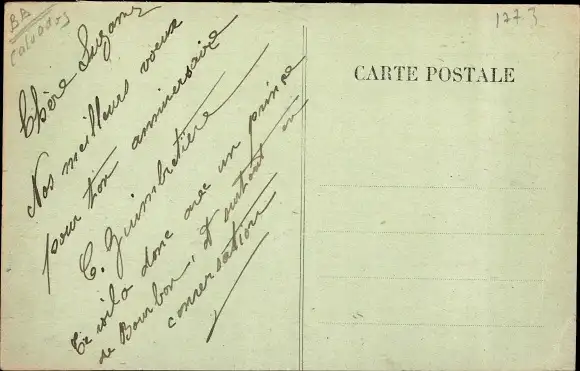 BA
Calvados
1773
CARTE POSTALE
Chère Suzanne
Nos meilleurs voeux
pour ton anniversaire
C. Guimbretière
Te voila donc avec un prince
de Bourbon, et surtout en
conversation